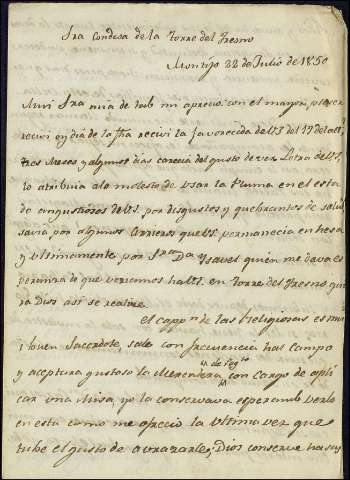 Sra Condesa de la Torre del Fresno
Montijo 22 de Julio de 1850
Mui Sra mia de tuto mi aprecio: con el mayor placer
recivi en dia de la fha recivi la favorecida de VS del 19 del act.
tres Meses y algunos dias carecia del gusto de ver Letra de VS,
lo atribuia alo molesto de usar la Pluma en el esta
do angustioso de VS. por disgustos y quebrantos de salud
savia por algunos Arrieros que VS. permanecia en
y ultimamente por Da Ysavel quien me dava es
peranza de que veriamos ha VS. en Torre del Fresno qui
era Dios asi se realize.
el capp.n de las Religiosas es mui
buen Sacerdote, sale con frecuencia hal Campo
y aceptara gustoso la con Cargo de apli
car una Misa, yo la conservava esperando verlo
en esta como me ofrecio la ultima vez que
tube el gusto de avrazarle; Dios conserve